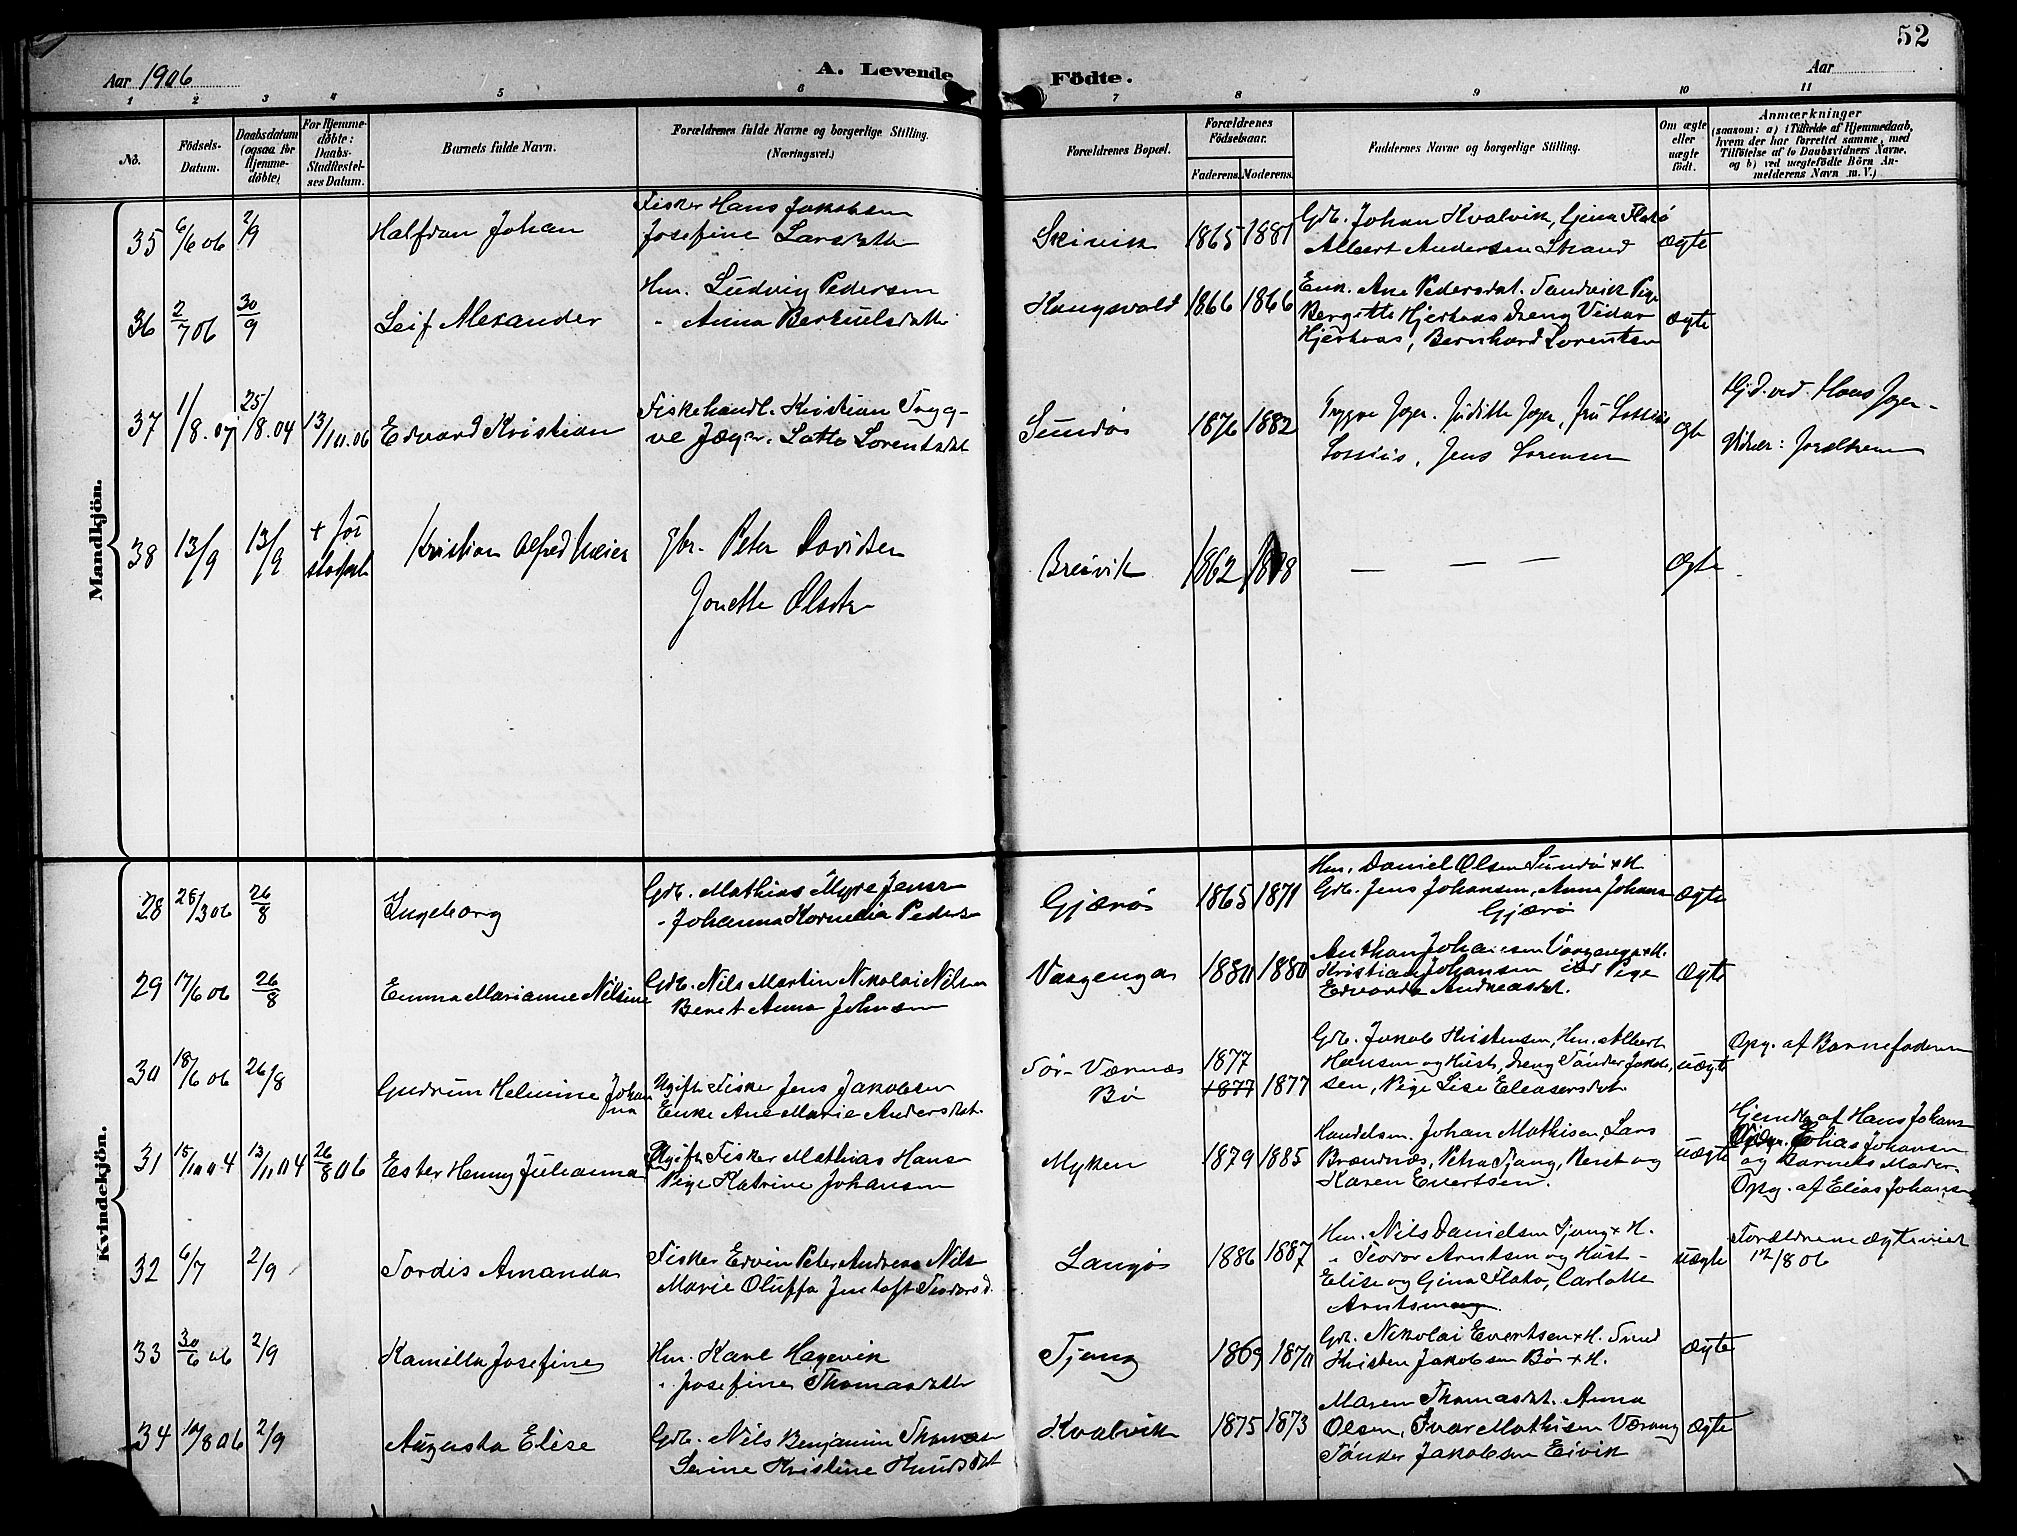 52
Aar 1906
A. Levende
Födte.
Aar
1 2 3 4 5 6 7 8 9 10 11
No.
Födsels-
Datum.
Daabsdatum
(ogsaa for
Hjemme-
döbte)
For Hjemme-
döbte:
Daabs-
Stadfæstel-
ses Datum.
Barnets fulde Navn.
Forældrenes fulde Navne og borgerlige Stilling.
(Næringsvei.)
Forældrenes Bopæl.
Forældrenes
Födselsaar.
Faderens. Moderens.
Faddernes Navne og borgerlige Stilling.
Om ægte
eller
uægte
födt.
Anmærkninger
(saasom: a) i Tilfælde af Hjemmedaab,
hvem der har forrettet samme, med
Tilföielse af to Daabsvidners Navne,
og b) ved uægtefödte Börn An-
melderens Navn m. V.)
Mandkjön.
35 6/6 06 2/9 Halfdan Johan
Fisker Hans Jakobsen
Josefine Larsdatter
Skivik 1865 1881
Gdb. Johan Kvalvik, Gina Flatø
Albert Andersen Strand
ægte
36 2/7 06 30/9 Leif Alexander
Hm. Ludvig Pedersen
" Anna Bertuelsdatter
Kongsvold 1866 1866
Enk. Ane Pedersdat. Sandvik Pige
Bergitte Hjerkaas Dreng Vidar
Hjerkaas, Bernhard Lorentsen
ægte
37 1/8. 25/8.04 13/10.06 Edvard Kristian
Fiskehandl. Kristian Tryg-
ve Jæger. Lotte Lorentsdat
Sundøs 1876 1882
Trygve Jæger. Juditte Jæger, fru Lossius
Lossius, Jens Lorensen
Hjd. ved. Hans Jæger
Vidner: Foreldrene
38 13/9 13/9 + før
stadfest
Kristian Alfred Meier
gbr. Peter Davidsen
Jonette Olsdtr
Breivik 1862
— — —
ægte
Kvindekjön.
28 26/3 06 26/8 Ingeborg
Gdb. Mathias Myre Jensen
" Johanna Kornelia Peders
Gjærøs 1865 1871
Hm. Daniel Olsen Sundø + H.
Gdb. Jens Johansen, Anna Johans
Gjærø
ægte
29 17/6 06 26/8 Emma Marianne Nilsine
Gdb. Nils Martin Nikolai Nilsen
Beret Anna Johnsen
Vaagenga 1880 1880
Anthon Johansen Vaagenga + H.
Kristian Johansen ibd Pige
Edvarda Andreasdat.
ægte
30 18/6 06 26/8 Gudrun Helmine Johan
na
Ugift Fisker Jens Jakobsen
Enke Ane Marie Andersdat.
Sør-Værnes
Bø
1877
1877 1877
Gdb. Jakob Kristensen, Hm. Albert
Hansen og Hust, Dreng Tønder Jakob
sen, Pige Lise Eleasersdat.
uægte
Opg. af Barnefaderen
31 15/10 04 13/11 04 26/8 06 Ester Henny Julianna
Ugift Fisker Mathias Hans
Pige Katrine Johansen
Myken 1879 1885
Handelsm. Johan Mathisen, Lars
Brændnæs, Petra Tjong, Beret og
Karen Evertsen.
uægte
Hjemdb. af Hans Johans
Elias Johansen
og Barnets Moder.
Opg. af Elias Johansen
32 6/7 2/9 Tordis Amanda
Fisker Edvin Peter Andreas Nils
Marie Oluffa Jentoft Teodorsd.
Langøs 1886 1887
Hm. Nils Danielsen Tjong + H.
" Teodor Arntsen og Hust -
Elise og Gina Flatø, Carlotte
Arntsen
uægte
Forældrene ægteviet
12/8 06
33 30/6 06 2/9 Kamilla Josefine
Hm. Karl Hagevik
" Josefine Thomasdatter
Tjong 1869 1870
Gdb. Nikolai Evertsen + H.
Kristen Jakobsen Bø + H.
ægte
34 10/8 06 2/9 Augusta Elise
Gdb. Nils Benjamin Thomas
Serine Kristine Knudsdat
Kvalvik 1875 1873
Maren Thomasdat. Anna
Olsen, Ivar Mathisen Værang
Tønder Jakobsen Eivik
ægte